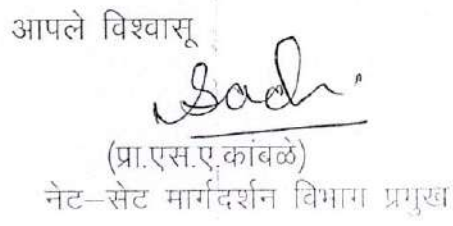 आपले विश्वासू
(प्रा.एस.ए.कांबळे)
नेट–सेट मार्गदर्शन विभाग प्रमुख